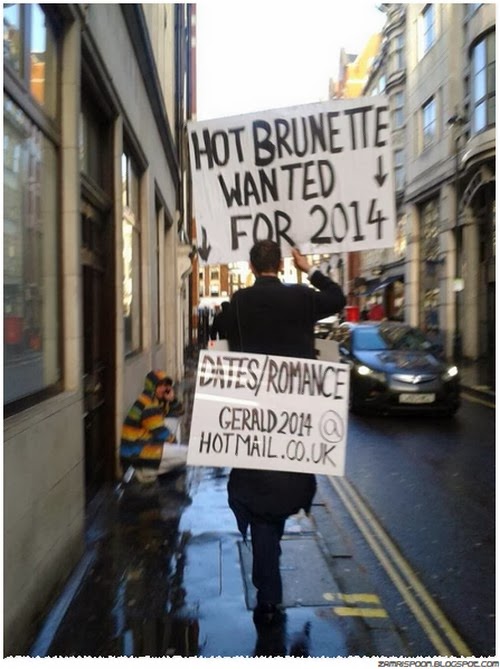 HOT BRUNETTE
WANTED
FOR 2014
DATES/ROMANCE
GERALD2014@
HOTMAIL.CO.UK
ZAMRISPOON.BLOGSPOT.COM